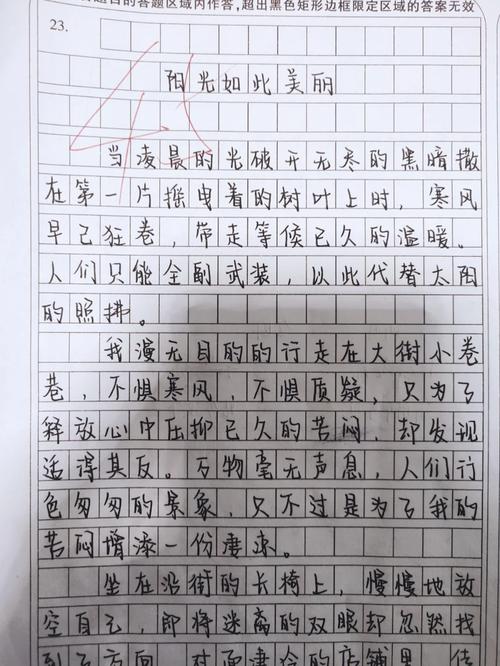 题目的答题区域内作答,超出黑色矩形边框限定区域的答案无效
23.
阳光如此美丽
当凌晨的光破开无尽的黑暗撒
在第一片摇曳着的树叶上时，寒风
早已狂卷，带走等候已久的温暖。
人们只能全副武装，以此代替太阳
的照拂。
我漫无目的的行走在大街小卷
巷，不惧寒风，不惧质疑，只为了
释放心中压抑已久的苦闷，却发现
适得其反。万物毫无声息，人们行
色匆匆的景象，只不过是为了我的
苦闷增添一份凄凉。
坐在沿街的长椅上，慢慢地放
空自己，即将迷离的双眼却忽然找
到了方向，对面凄冷的店铺里，佳